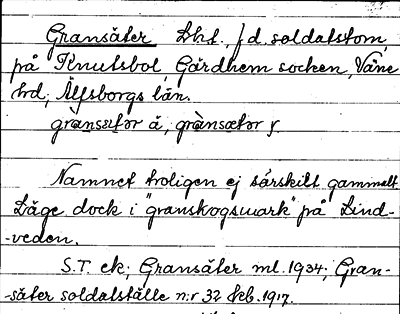 Gransäter Lht. f.d. soldattom,
på Knutsbol, Gärdhem socken, Väne
hrd, Älfsborgs län.
grànsætər ä, grànsætər y
Namnet troligen ej särskilt gammalt
Läge dock i "granskogsmark" på Lind-
-veden.
S.T. ek; Gransäter ml. 1934; Gran-
-säter soldatställe n:r 32 Kkb. 1917.